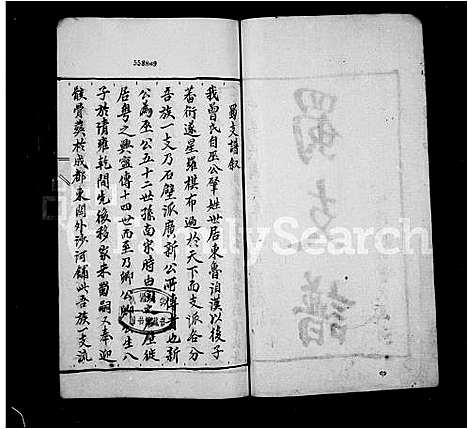 558849
蜀支譜叙
我曾氏自巫公肇姓世居東魯洎漢以後子
蕃衍遂星羅棋布遍於天下而支派各分
吾族一支乃石壁派廣新公所傳也新
公為巫公五十二世孫南宋時由
居粵之興寧傳十四世而至乃卿公卿生八
子於清雍乾間先後移家來蜀嗣又奉迎
骸骨葬於成都東關外沙河鋪此吾族一支流
蜀支譜
FamilySearch